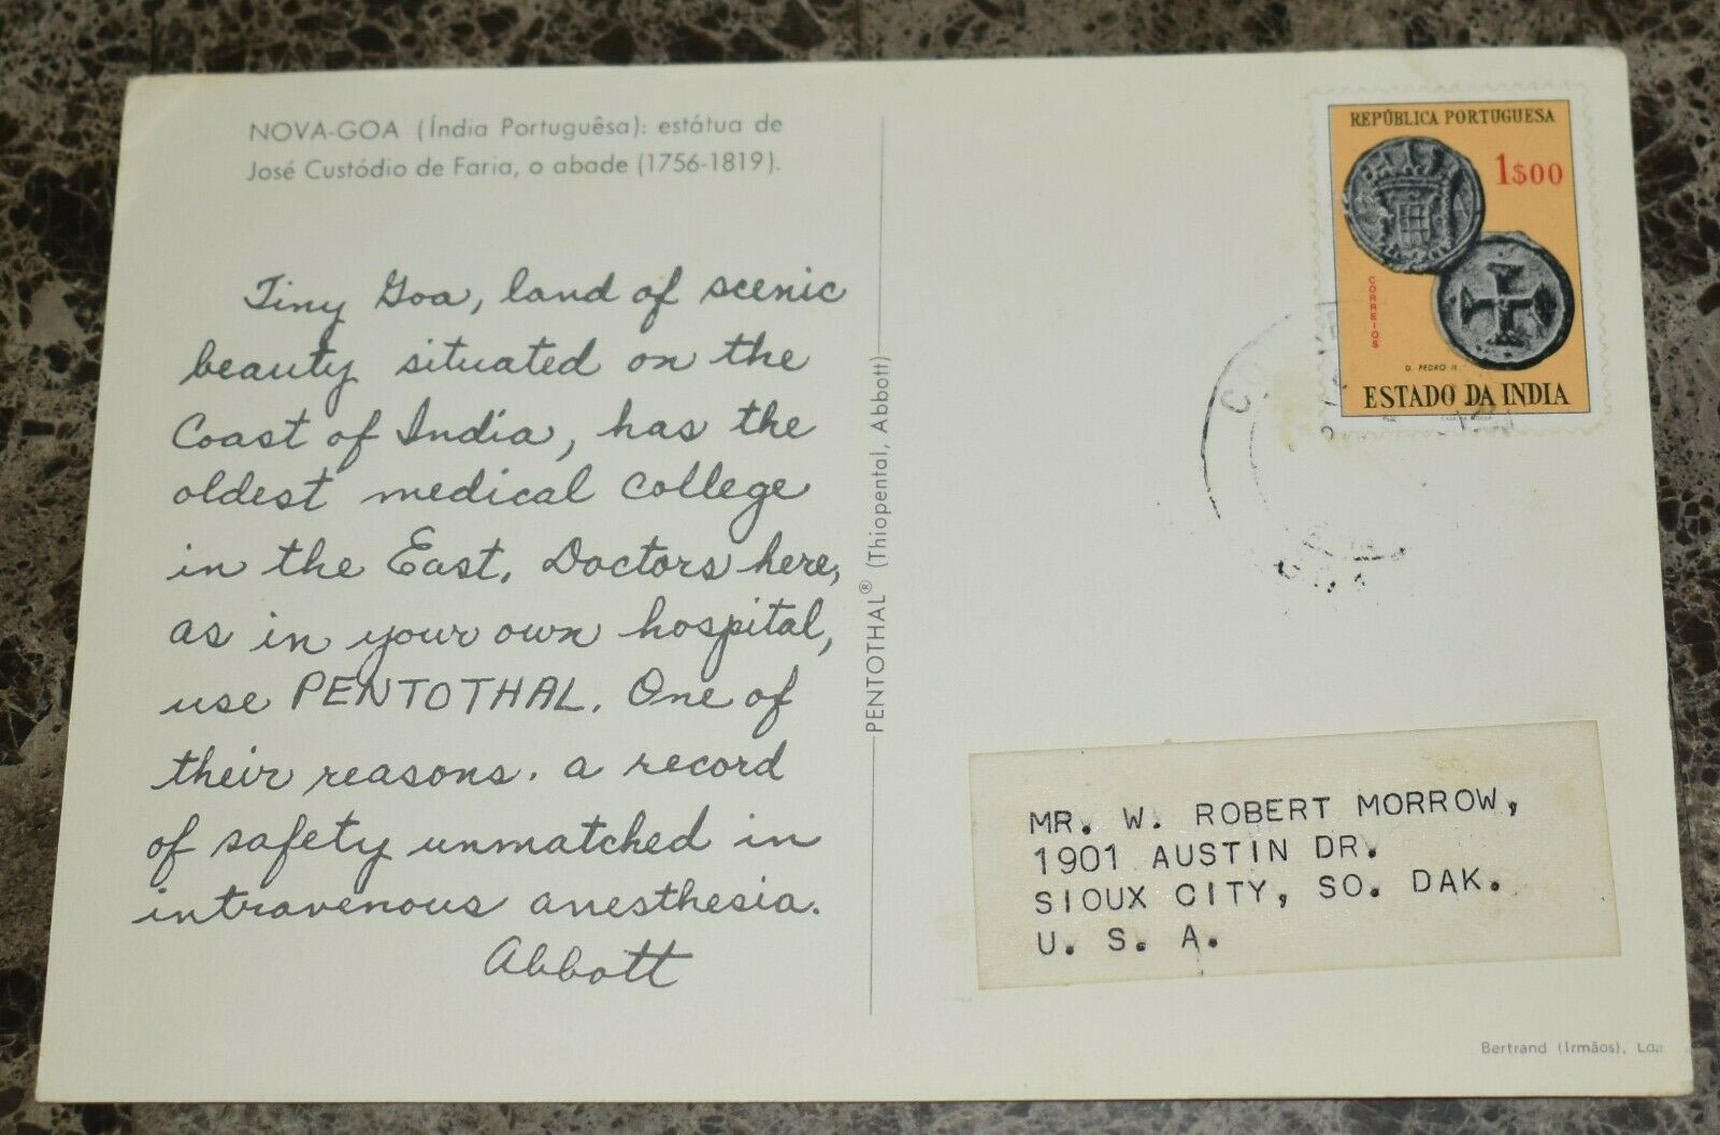 NOVA-GOA (Índia Portuguêsa): estátua de
José Custódio de Faria, o abade (1756-1819).
Tiny Goa, land of scenic
beauty situated on the
Coast of India, has the
oldest medical college
in the East. Doctors here,
as in your own hospital,
use PENTOTHAL. One of
their reasons. a record
of safety unmatched in
intravenous anesthesia.
Abbott
PENTOTHAL® (Thiopental, Abbott)
REPÚBLICA PORTUGUESA
1$00
CORREIOS
D. PEDRO II
ESTADO DA INDIA
MR. W. ROBERT MORROW,
1901 AUSTIN DR.
SIOUX CITY, SO. DAK.
U. S. A.
Bertrand (Irmãos), Lda